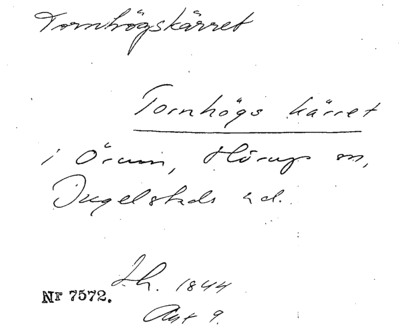 Tornhögskärret
Tornhögs kärret
i Örum, Hörups sn,
Ingelstads hd.
Lh. 1844
Nr 7572.
Akt 9.